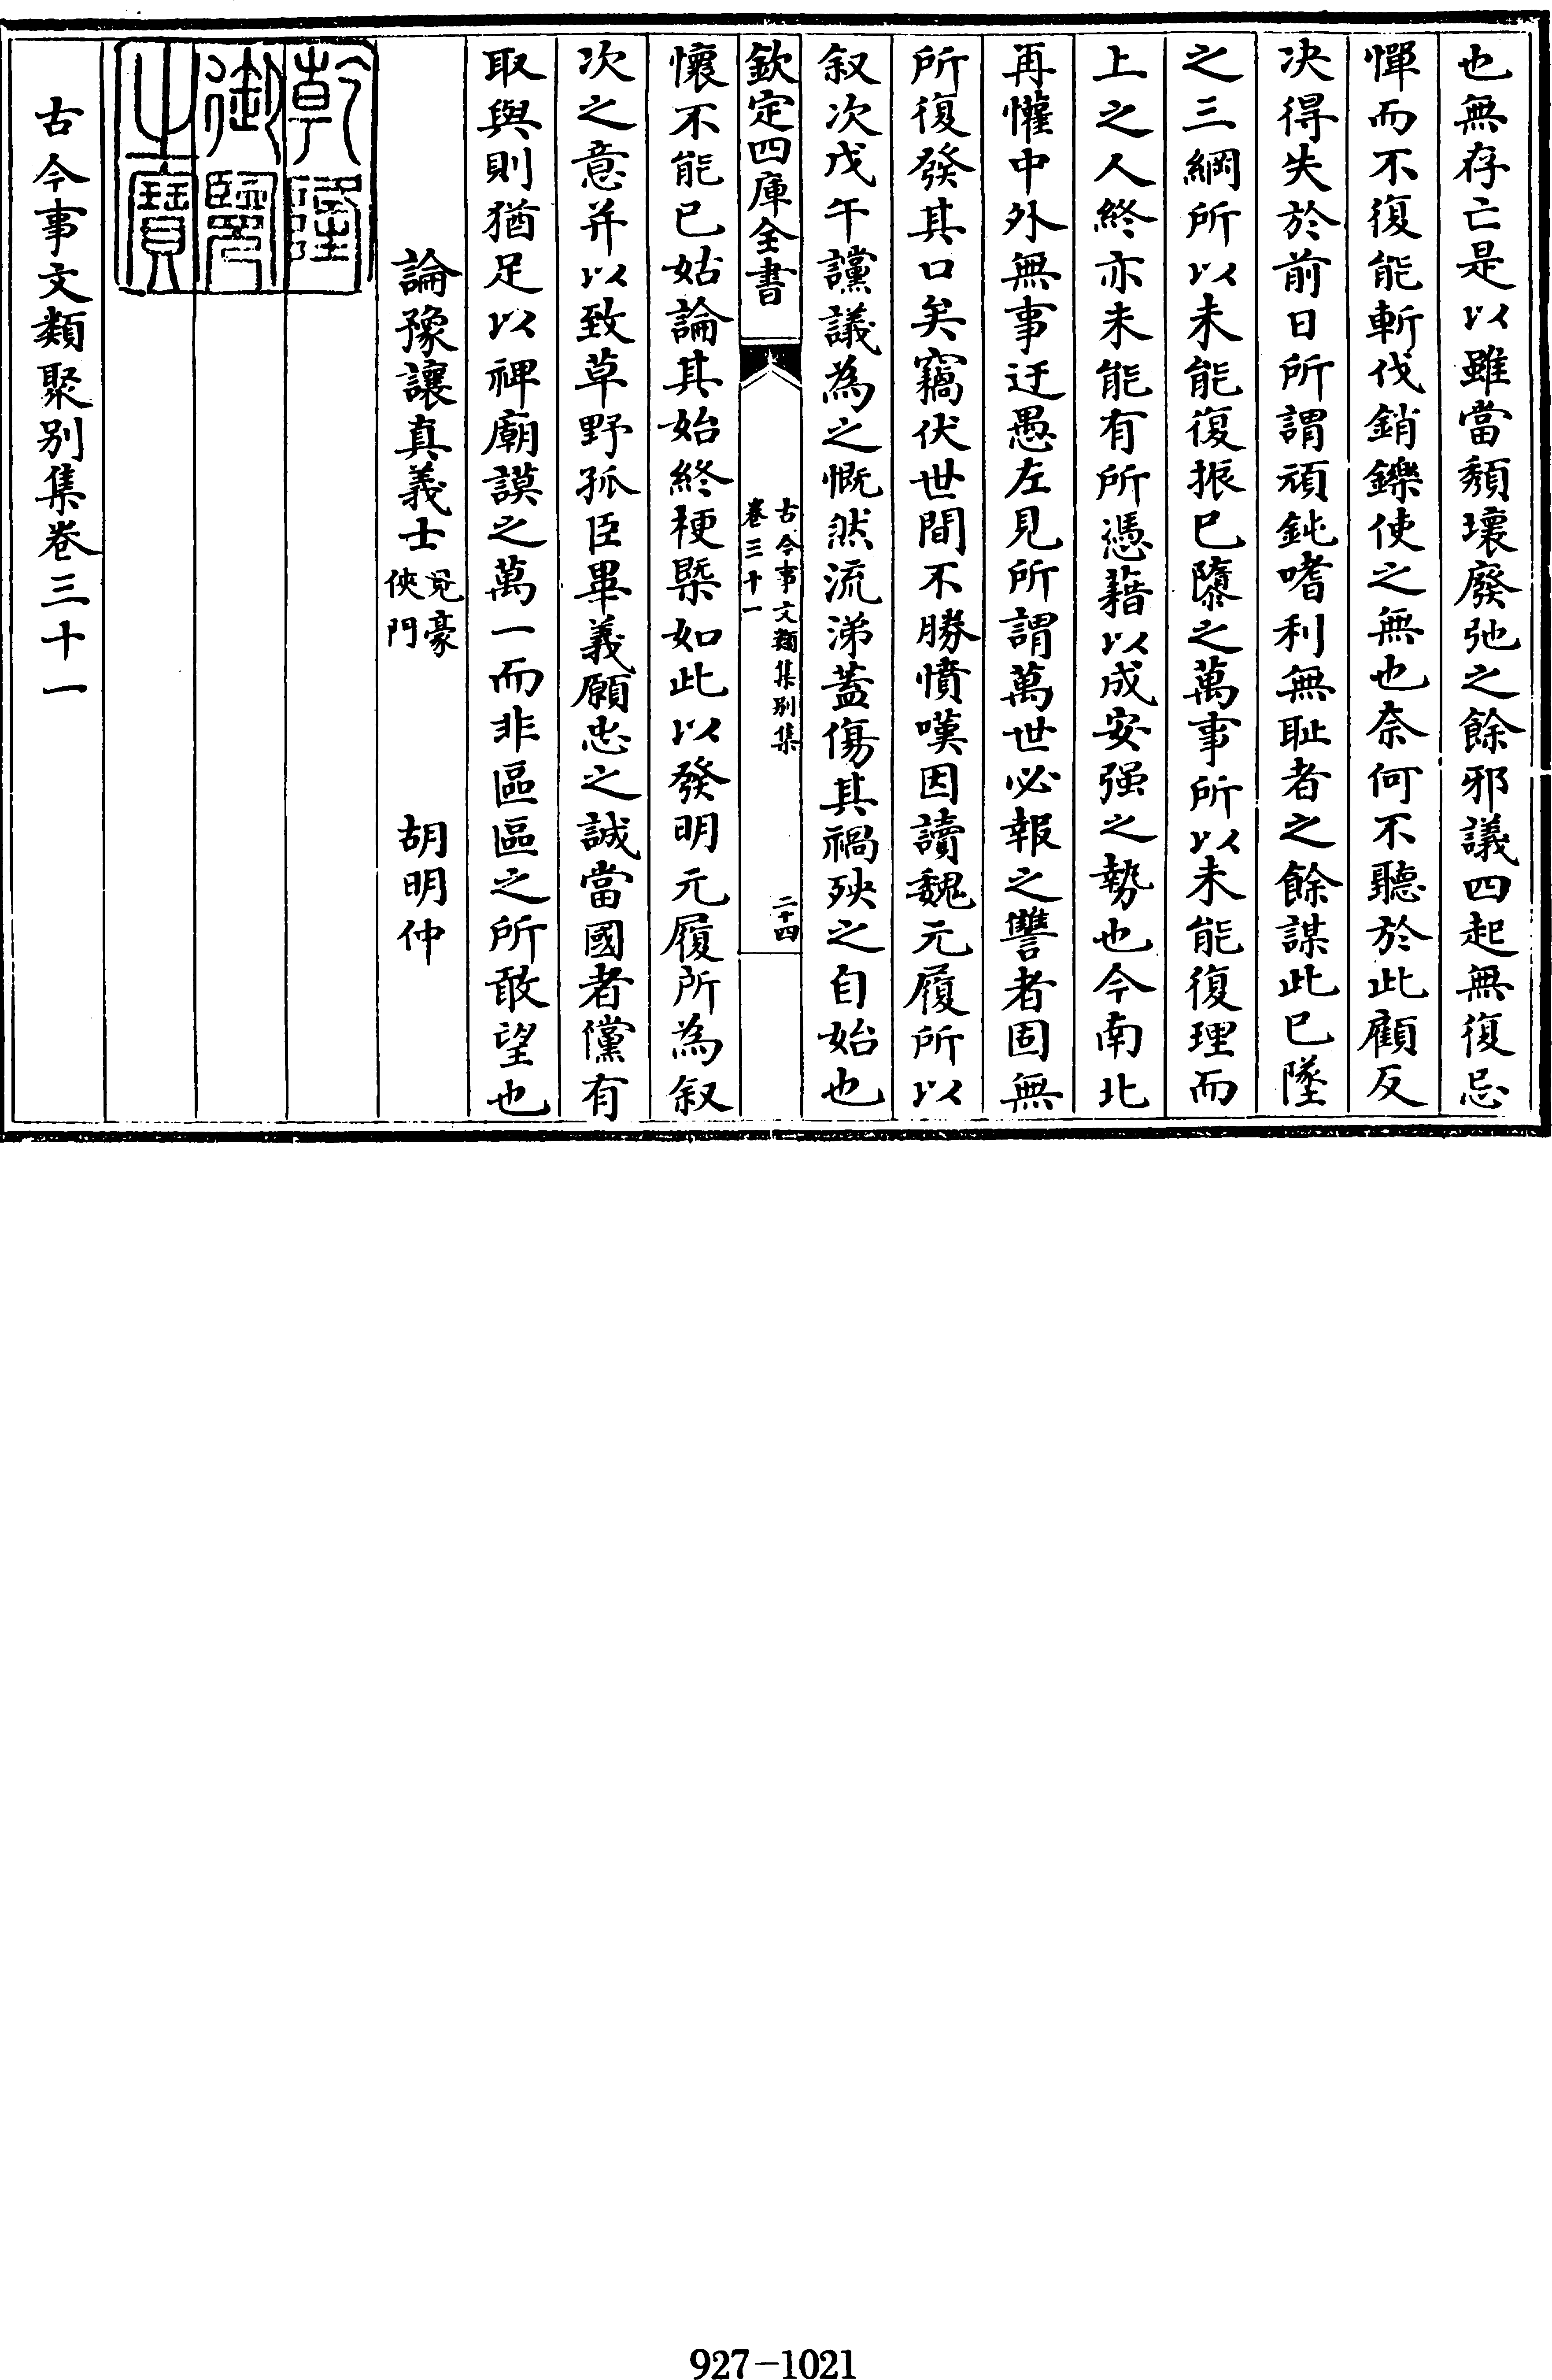 也無存亡是以雖當頽壞廢弛之餘邪議四起無復忌
憚而不復能斬伐銷鑠使之無也奈何不聽於此顧反
决得失於前日所謂頑鈍嗜利無耻者之餘謀此已墜
之三綱所以未能復振已隳之萬事所以未能復理而
上之人終亦未能有所憑藉以成安强之勢也今南北
再懽中外無事迂愚左見所謂萬世必報之讐者固無
所復發其口矣竊伏世間不勝憤嘆因讀魏元履所以
叙次戊午讜議為之慨然流涕蓋傷其禍殃之自始也
欽定四庫全書
古今事文類集别集
卷三十一
二十四
懷不能已姑論其始終梗槩如此以發明元履所為叙
次之意并以致草野孤臣畢義願忠之誠當國者儻有
取與則猶足以裨廟謨之萬一而非區區之所敢望也
論豫讓真義士 見豪俠門 胡明仲
乾隆
御覽
之寶
古今事文類聚别集卷三十一
927-1021